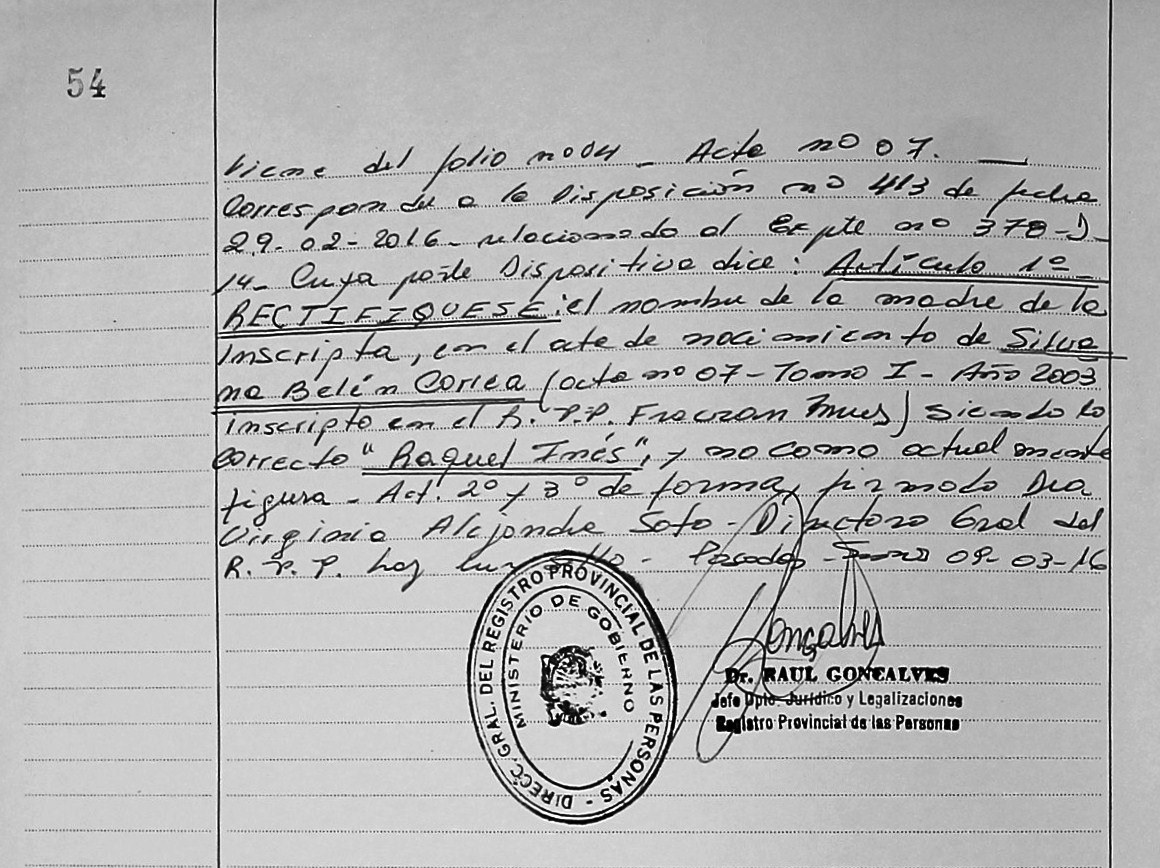 54
Viene del folio nº 04 - Acta nº 07. —
Corresponde a la Disposición nº 413 de fecha
29-02-2016- relacionado al Expte nº 378-D-
14- Cuya parte Dispositiva dice: Artículo 1º-
RECTIFIQUESE: el nombre de la madre de la
inscripta, en el acta de nacimiento de Silva
na Belén Correa (acta nº 07 - Tomo I - Año 2003
inscripto en el R. P.P. Fracran) Siendo lo
correcto "Raquel Inés", y no como actualmente
figura - Art. 2º y 3º de forma, firmado Dra
Virginia Alejandra Soto - Directora Gral del
R. P. P. hay un sello - Posadas 09-03-16
DIREC. GRAL. DEL REGISTRO PROVINCIAL DE LAS PERSONAS -
MINISTERIO DE GOBIERNO
Goncalves
Dr. RAUL GONCALVES
Jefe Dpto. Jurídico y Legalizaciones
Registro Provincial de las Personas